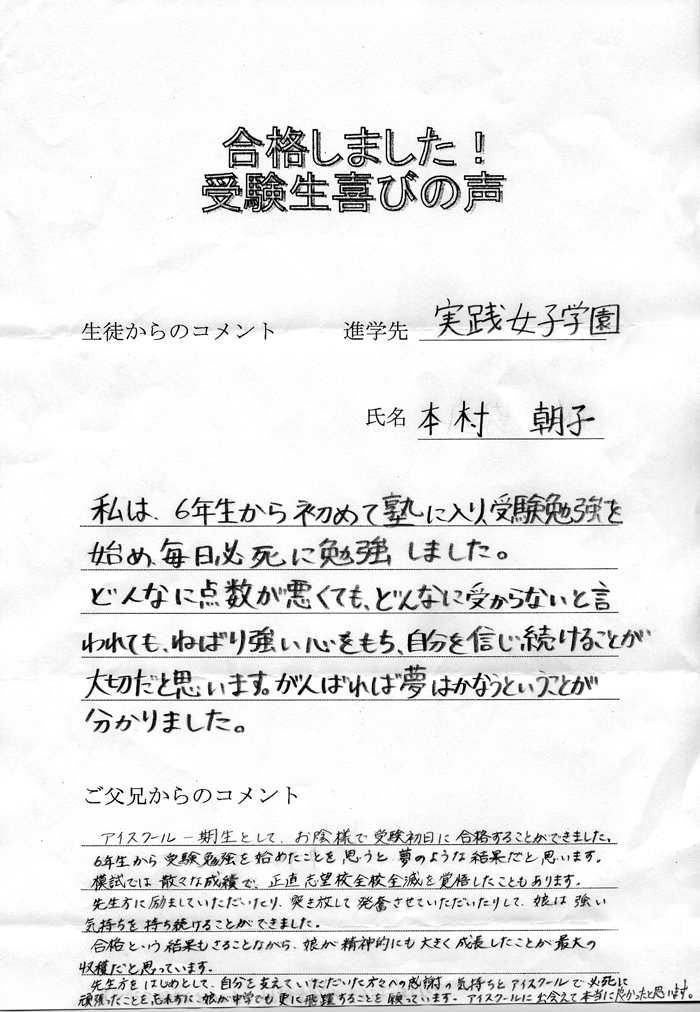 合格しました!
受験生喜びの声
生徒からのコメント 進学先 実践女子学園
氏名 本村 朝子
私は、6年生から初めて塾に入り、受験勉強を
始め、毎日必死に勉強しました。
どんなに点数が悪くても、どんなに受からないと言
われても、ねばり強い心をもち、自分を信じ続けることが
大切だと思います。がんばれば夢はかなうということが
分かりました。
ご父兄からのコメント
アイスクール一期生として、お陰様で受験初日に合格することができました。
6年生から受験勉強を始めたことを思うと夢のような結果だと思います。
模試では散々な成績で、正直志望校全校全滅を覚悟したこともあります。
先生方に励ましていただいたり、突き放して発奮させていただいたりして、娘は強い
気持ちを持ち続けることができました。
合格という結果もさることながら、娘が精神的にも大きく成長したことが最大の
収穫だと思っています。
先生方をはじめとして、自分を支えていただいた方々への感謝の気持ちとアイスクールで必死に
頑張ったことを忘れずに、娘が中学でも更に飛躍することを願っています。アイスクールに出会えて本当によかったと思います。